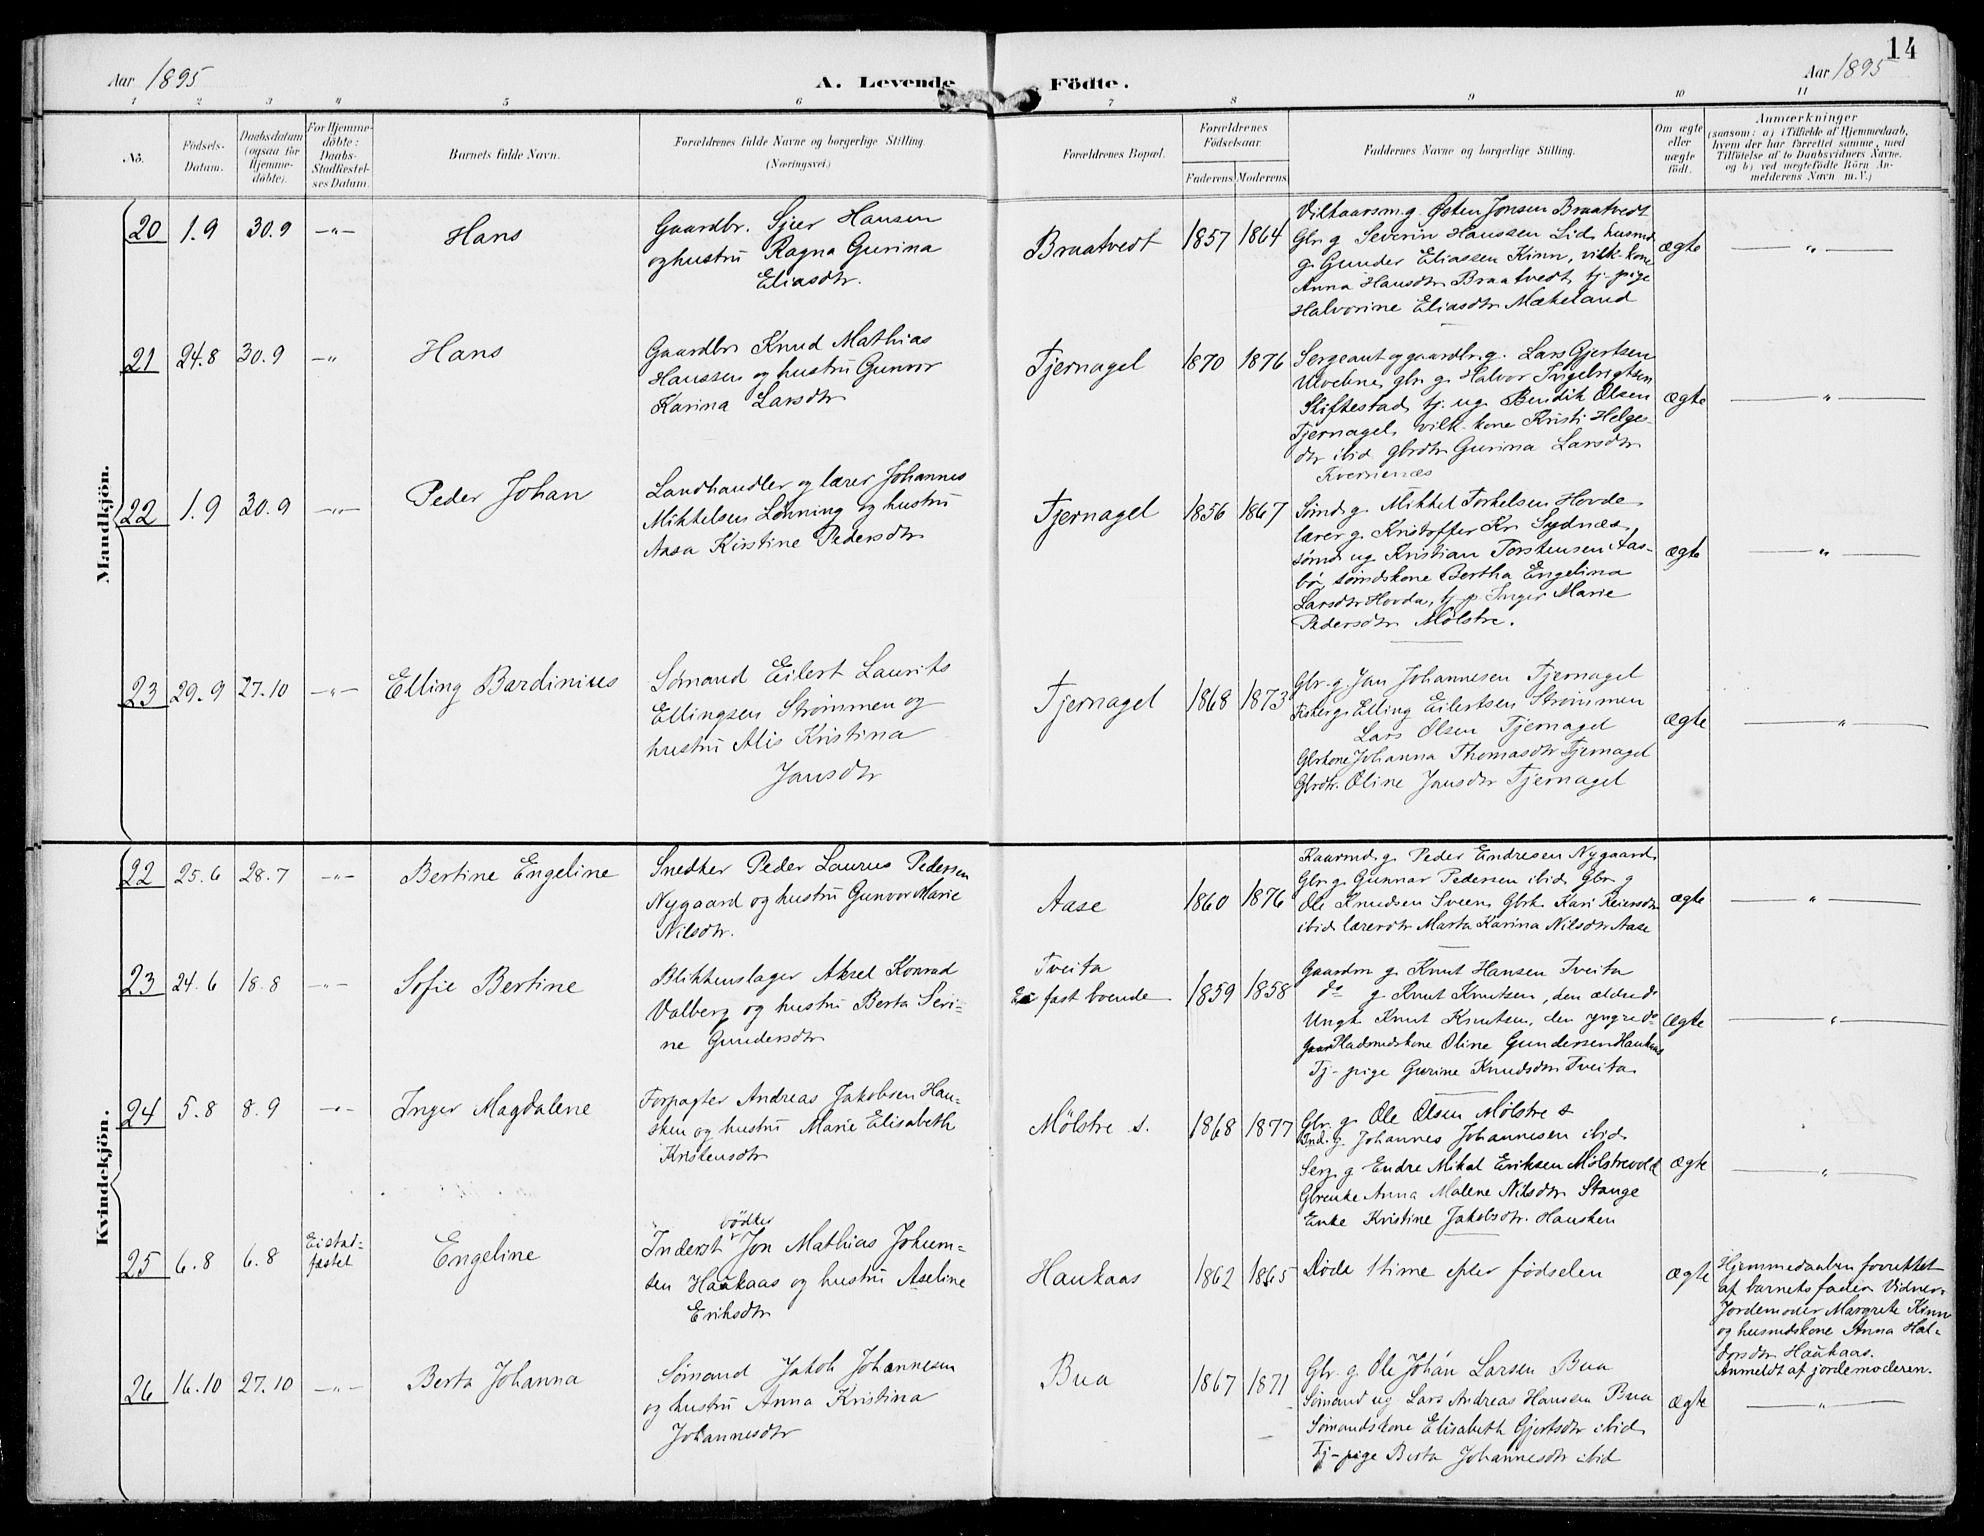 14
Aar 1895
A. Levende Födte.
Aar 1895
1 2 3 4 5 6 7 8 9 10 11
No.
Födsels-
Datum.
Daabsdatum
(ogsaa for
Hjemme-
döbte).
For Hjemme-
döbte:
Daabs-
Stadfæstel-
ses Datum.
Barnets fulde Navn.
Forældrenes fulde Navne og borgerlige Stilling.
(Næringsvei.)
Forældrenes Bopæl.
Forældrenes
Födselsaar.
Faderens.
Moderens.
Faddernes Navne og borgerlige Stilling.
Om ægte
eller
uægte
födt.
Anmærkninger
(saasom: a) i Tilfælde af Hjemmedaab,
hvem der har forrettet samme, med
Tilföielse af to Daabsvidners Navne.
og b) ved uægtefödte Börn An-
melderens Navn m. V.)
Mandkjön.
20
1.9
30.9
—"—
Hans
Gaardbr. Sjur Hansen
og hustru Ragna Gurina
Eliasdtr.
Braatvedt
1857
1864
Vilkaarsm. g. Østen Jonsen Braatvedt
Gbr g Severin Hanssen Lid, husmd
g. Gunder Eliassen Kinn, vilk-kone
Anna Hansdtr Braatvedt, tj-pige
Halvorine Eliasdtr Mækeland
ægte
—"—
21
24.8
30.9
—"
Hans
Gaardbr Knud Mathias
Hanssen og hustru Gunvor
Karina Larsdtr
Tjernagel
1870
1876
Sergeant og gaardbr. g. Lars Gjertsen
Ulvebne, gbr g. Halvor Ingebrigtsen
Skiftestad, tj. ug. Bendik Olsen
Tjernagel, vilk-kone Kristi Helges-
dtr ibid, gbrdtr Gurina Larsdtr
Kvernenæs
ægte
—"—
22
1.9
30.9
—"—
Peder Johan
Landhandler og lærer Johannes
Mikkelsen Lønning og hustru
Aasa Kirstine Pedersdtr
Tjernagel
1856
1867
Sømd g. Mikkel Torkelsen Hovde
lærer g. Kristoffer Kr Sydnæs
sømd ug Kristian Torstensen Aas-
bø, sømdskone Bertha Engelina
Larsdtr Hovda, tj. p. Inger Marie
Pedersdtr Mølstre.
ægte
—"—
23
29.9
27.10
—"—
Elling Bardinius
Sømand Eilert Laurits
Ellingsen Strømmen og
hustru Alis Kristina
Jansdtr
Tjernagel
1868
1873
Gbr. g. Jan Johannesen Tjernagel
Fisker g Elling Eilertsen Strømmen
Lars Olsen Tjernagel
Gbrkone Johanna Thomasdtr Tjernagel
Gbrdtr. Oline Jansdtr Tjernagel
ægte
—"—
Kvindekjön.
22
25.6
28.7
—"—
Bertine Engeline
Snedker Peder Laurus Pedersen
Nygaard og hustru Gunvor Marie
Nilsdtr.
Aase
1860
1876
Kaarmd g. Peder Endresen Nygaard,
Gbr. g. Gunnar Pedersen ibid, Gbr. g
Ole Knudsen Sveen, Gbrk Kari Reiersdtr
ibid, lærerdtr Marta Karina Nilsdtr Aase
ægte
—"—
23
24.6
18.8
—"—
Sofie Bertine
Blikkenslager Aksel Konrad
Valberg og hustru Berta Seri-
ne Gundersdtr
Tveita
Ei fast boende
1859
1858
Gaardm g. Knut Hansen Tveita
do g Knut Knutsen, den ældre do
Ungk Knut Knutsen, den yngre do
Pladsmdskone Oline Gundersen Haukaas
Tj-pige Gurine Knudsdtr Tveita
ægte
—"—
24
5.8
8.9
—"—
Inger Magdalene
Forpagter Andreas Jakobsen Hau-
sken og hustru Marie Elisabeth
Kristensdtr
Mølstre s.
1868
1877
Gbr. g. Ole Olsen Mølstre s
Ind. g. Johannes Johannesen ibid,
Serg. g Endre Mikal Eriksen Mølstrevold
Gbrenke Anna Malene Nilsdtr Stange
Enke Kristine Jakobsdtr. Hausken
ægte
—"—
25
6.8
6.8
Ei stad-
fæstet
Engeline
bødker
Inderst Jon Mathias Johem-
sen Haukaas og hustru Aseline
Eriksdtr
Haukaas
1862
1865
Døde 1 time efter fødselen
ægte
Hjemmedaaben forrettet
af barnets fader. Vidner:
Jordemoder Margrete Kinn
og husmdskone Anna Hal-
dorsdtr Haukaas.
Anmeldt af jordemoderen.
26
16.10
27.10
—"—
Berta Johanna
Sømand Jakob Johannesen
og hustru Anna Kristina
Johannesdtr
Bua
1867
1871
Gbr. g. Ole Johan Larsen Bua
Sømand ug Lars Andreas Hansen Bua
Sømandskone Elisabeth Gjertsdtr ibid,
Tj-pige Berta Johannesdtr ibid
ægte
—"—